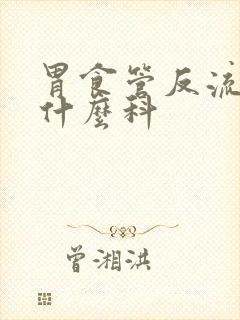 胃食管反流
什麼科
曾湘洪